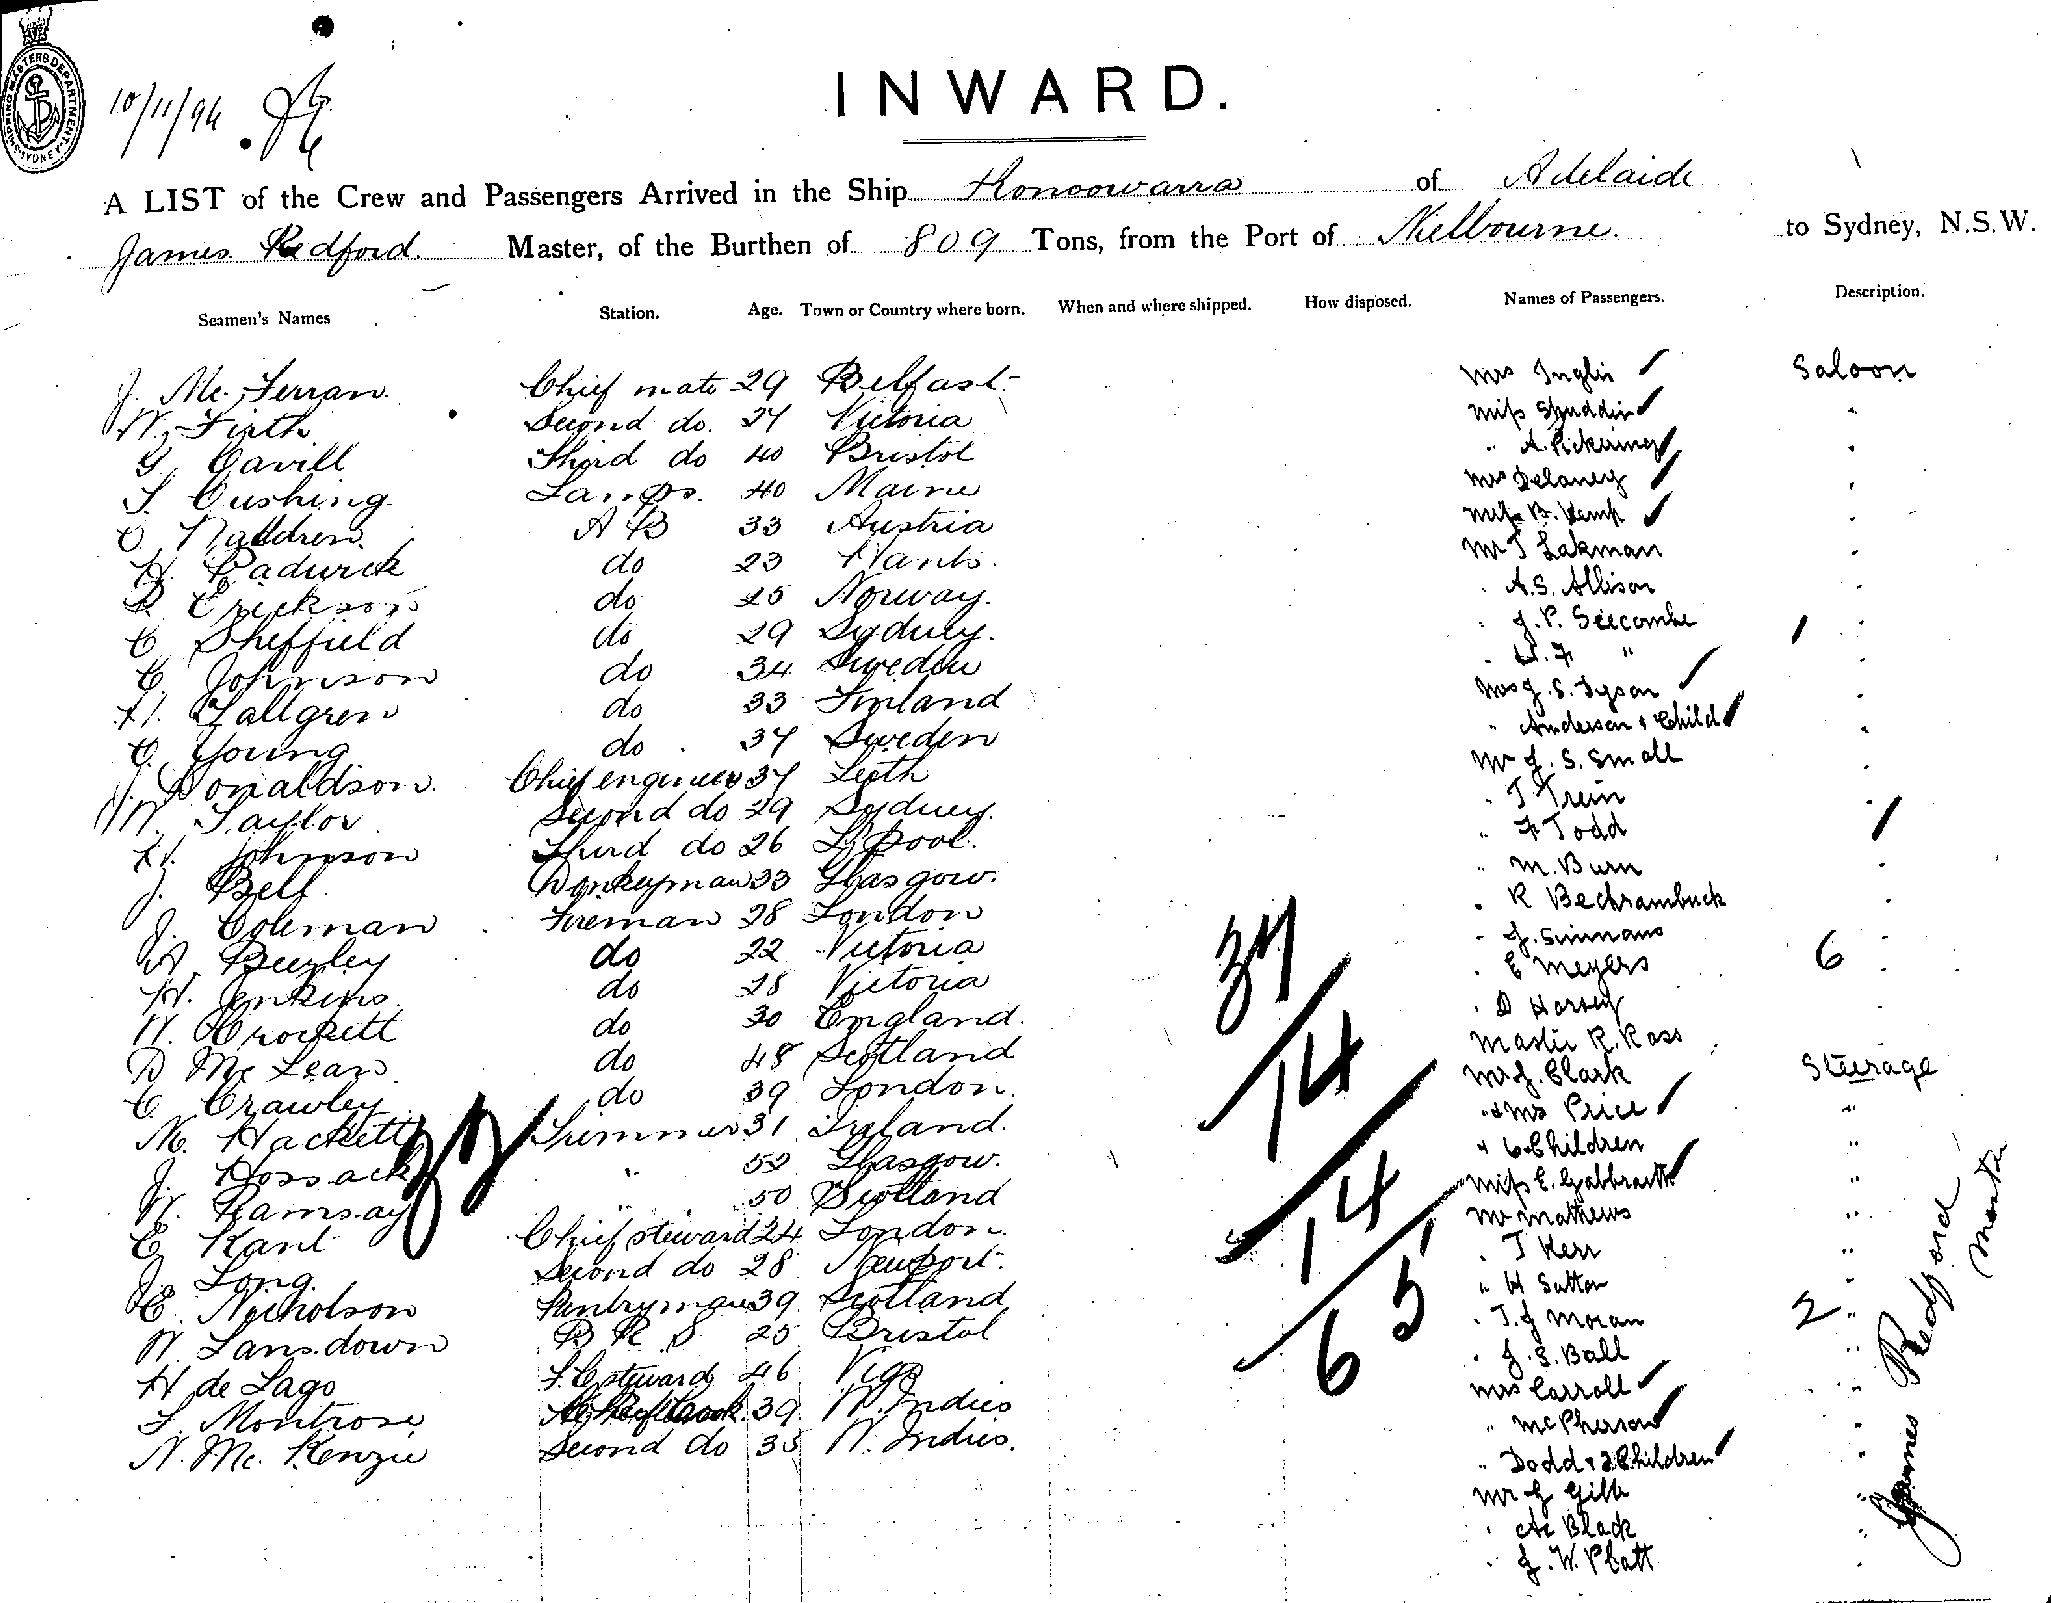 INWARD.
10/11/94
A LIST of the Crew and Passengers Arrived in the Ship Konoowarra of Adelaide
James Redford. Master, of the Burthen of 809 Tons, from the Port of Melbourne. to Sydney, N.S.W.
Seamen's Names Station. Age. Town or Country where born. When and where shipped. How disposed. Names of Passengers. Description.
J. Mc. Ferran. Chief mate 29 Belfast. Mrs Inglis Saloon
W. Firth Second do. 27 Victoria Miss
G. Cavill Third do 40 Bristol " A. Pickering
S. Cushing Lamps. 40 Maine Mrs Delaney
C. Naldren. A B 33 Austria Miss B. Kemp
H. Padwick do 23 Hants. Mr T Lakman
Erickson do 25 Norway. A. S. Allison
C Sheffield do 29 Sydney. J. P. Seccombe
C Johnson do 34 Sweden "
H. Fallgren do 33 Finland Mrs J. S. Tyson
C. Young do 37 Sweden " Anderson & Child
J. Donaldson. Chief engineer 37 Leith Mr J. S. Small
W. Taylor Second do 29 Sydney. T. Trein
H. Johnson Third do 26 L'pool. " F Todd
J. Bell Donkeyman 33 Glasgow. " M. Burn
J. Coleman Fireman 28 London R Bechrambuck
Beezley do 22 Victoria J. Simmans
H. Jenkins do 28 Victoria E Meyers 6
W. Crockett do 30 England. D Horsey
D Mc Lean do 48 Scotland Master R. Ross
C Crawley do 39 London. Mr J. Clark Steerage
M. Hackett Trimmer 31 Ireland. " & Mrs Price "
J. Hossack " 52 Glasgow. " 6 Children "
W. Ramsay " 50 Scotland Miss E. Galbraith "
E Kant Chief steward 24 London. Mr Mathews "
J. Long Second do 28 Newport. T Kerr "
E. Nicholson Pantryman 39 Scotland " H Sutton "
W. Lansdown B R S 25 Bristol T. J Moran 2 "
H de Lago F. C steward 46 Vigo J. S. Ball "
S. Montrose Cook 39 W. Indies Mrs Carroll "
N. Mc. Kenzie Second do 35 W. Indies. " McPherson "
" Dodd & 2 Children "
Mr G Gill "
Black "
J. W. Platt "
37
14
14
65
James Redford
Master